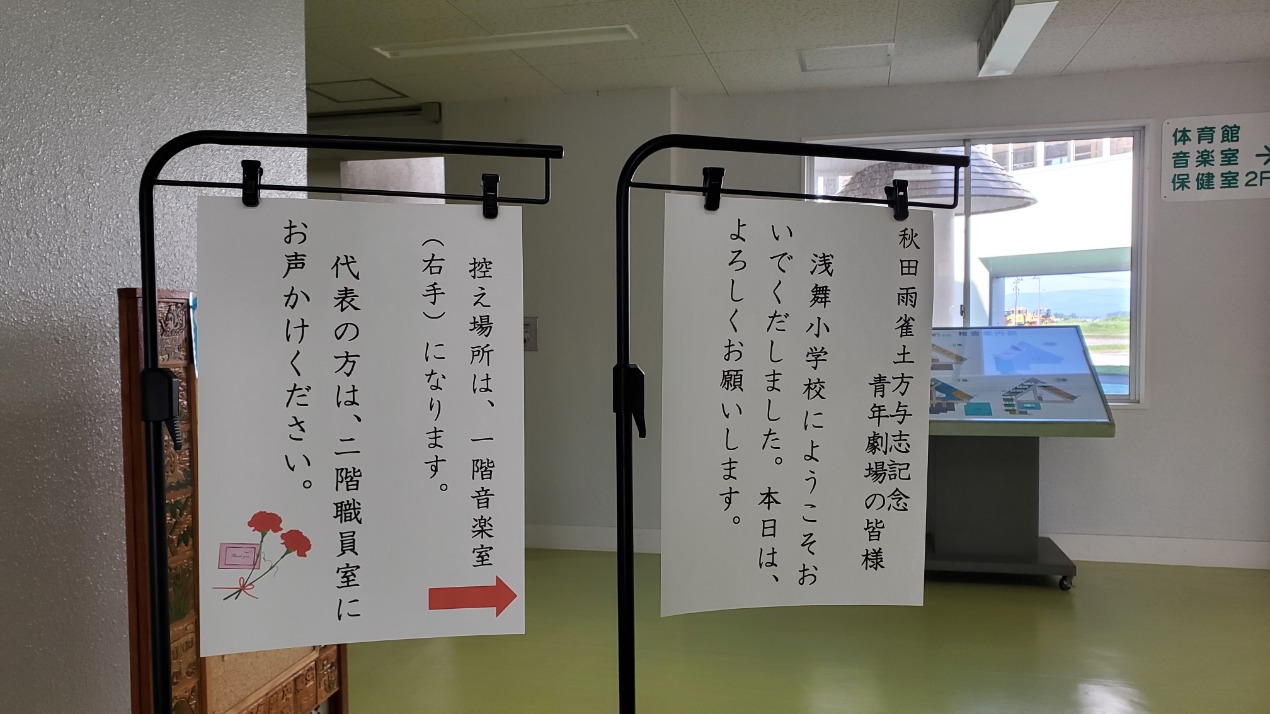 秋田雨雀土方与志記念
青年劇場の皆様
浅舞小学校にようこそお
いでくだしました。本日は、
よろしくお願いします。
控え場所は、一階音楽室
（右手）になります。
代表の方は、二階職員室に
お声かけください。
体育館
音楽室 →
保健室 2F